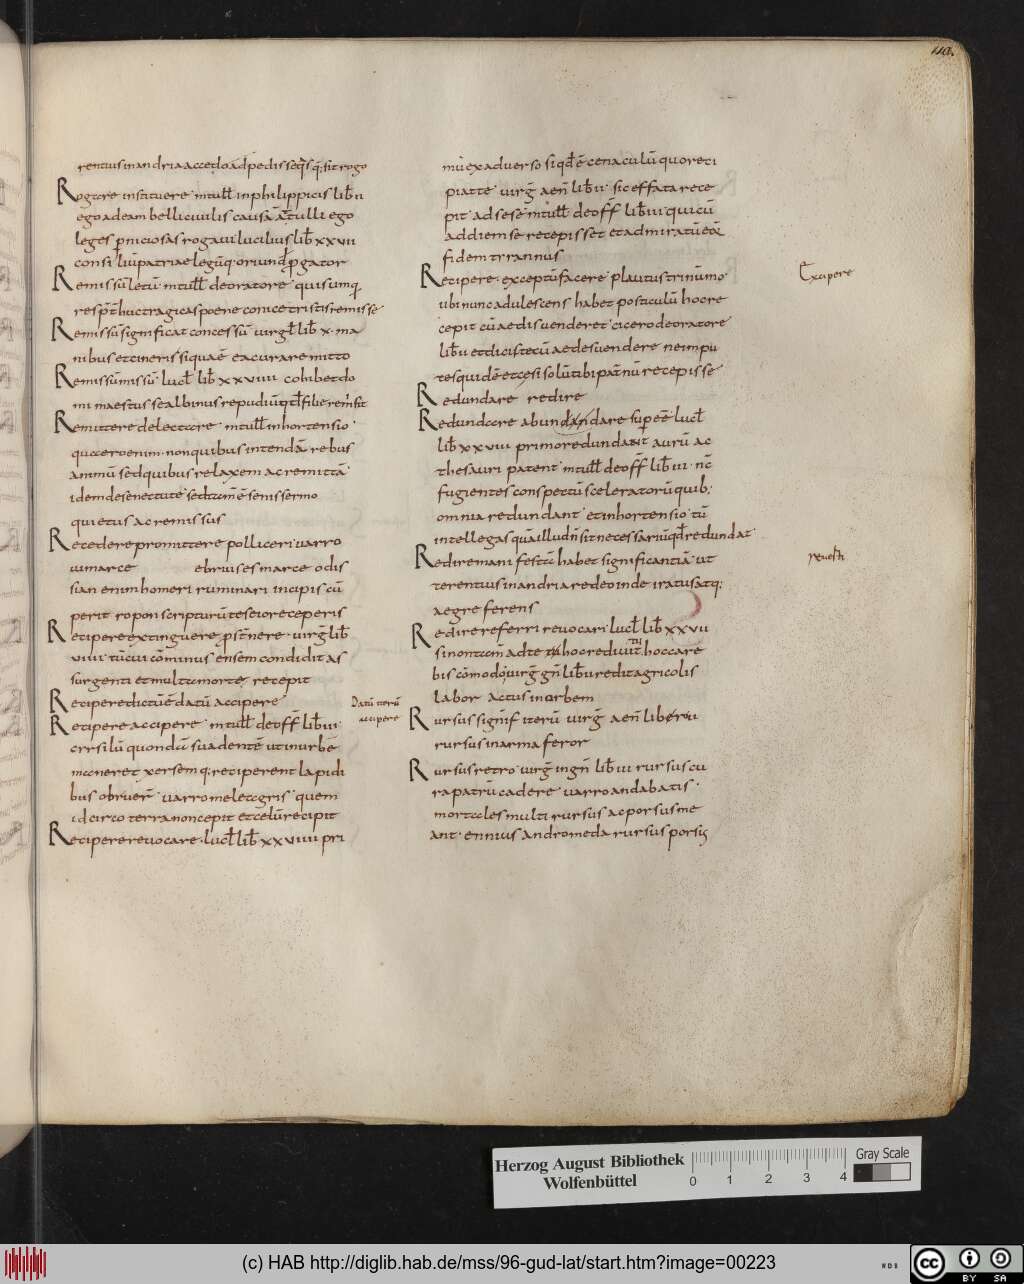 110.
rentius in andria accedo ad pedisseq̄s q̄; sit rogo
Rogare instituere m̄ tull̄ in philippicis lib̄ ii
ego adeam belli ciuilis causā at tulli ego
leges p̄niciosas rogaui lucilius lib̄ xxvii
consiliū patriae legūq; oriund̄
Remissū letū m̄ tull̄ de oratore quis umq̄
resp̄ thuc tragicas poene comice tristis remisse
Remissū significat concessū uirgl̄ lib̄ x ma
nibus et cineri si qua ē ea cura remitto
Remissū missū lucl̄ lib̄ xxviiii cohibet do
mi maestus se albinus repudiū qd̄ filiae remisit
Remittere delectare m̄ tull̄ in hortensio
quaero enim non quibus intendā rebus
animū sed quibus relaxem ac remittā
idem de senectute sed tam̄ ē senis sermo
quietus ac remissus
Recedere promittere polliceri uarro
uimarce ebriuises marce odis
sian enim homeri ruminari incipis cū
perit ropon scripturū te scio receperis
Recipere extinguere p̄st̄nere uirgl̄ lib̄
viiii tū cui cōminus ensem condidit as
surgenti et multa morte recepit
Recipere dictū ē datū accipere
Recipere accipere m̄ tull̄ de off̄ lib̄ iii
crrsilū quondā suadentē ut in urbē
maneret xersemq; reciperent lapidi
bus obruer̄ uarro meleagris quem
idcirco terra non cepit et celū recipit
Recipere reuocare lucl̄ lib̄ xxviiii pri
Datū iterū
accipere
mū ex aduerso siqd̄ ē cenaculū quo reci
piat te uirḡ aen̄ lib̄ ii sic effata rece
pit ad sese m̄ tull̄ de off̄ lib̄ iii qui cū
ad diem se recepisset et admiratū eā
fidem tyrannus
Recipere exceptū facere plautus trinūmo
ubi nunc adulescens habet posticulū hoc re
cepit cū aedis uenderet cicero de oratore
lib̄ ii et dicis te cū aedes uendere ne in pu
tes quidē et cesi solūtibi paternū recepisse
Redundare redire
Redundare abundandare sup̄ eē lucl̄
lib̄ xxviii primo redundat aurū ac
thesauri patent m̄ tull̄ de off̄ lib̄ iii nc̄
fugientes conspectū sceleratorū quib;
omnia redundant et in hortensio tū
intellegas quā illud n̄ sit necessariū qd̄ redundat
Redire manifestā habet significantiā ut
terentius in andria redeo inde iratus atq;
aegre ferens
Redire referri reuocari lucl̄ lib̄ xxvii
sin on tam̄ ad te hoc rediuit hoc care
bis cōmodo; uirḡ gn̄ lib̄ ii redit agricolis
labor actus in orbem
Rursus signif̄ iterū uirḡ aen̄ libero ii
rursus in arma feror
Rursus retro uirḡ in gn̄ lib̄ iii rursus cu
ra patrū cadere uarro andabatis
mortales multi rursus ac porsus me
ant ennius andromeda rursus porsi;
Excipere
Herzog August Bibliothek
Wolfenbüttel
0 1 2 3 4
Gray Scale
(c) HAB http://diglib.hab.de/mss/96-gud-lat/start.htm?image=00223
WDB
cc BY SA